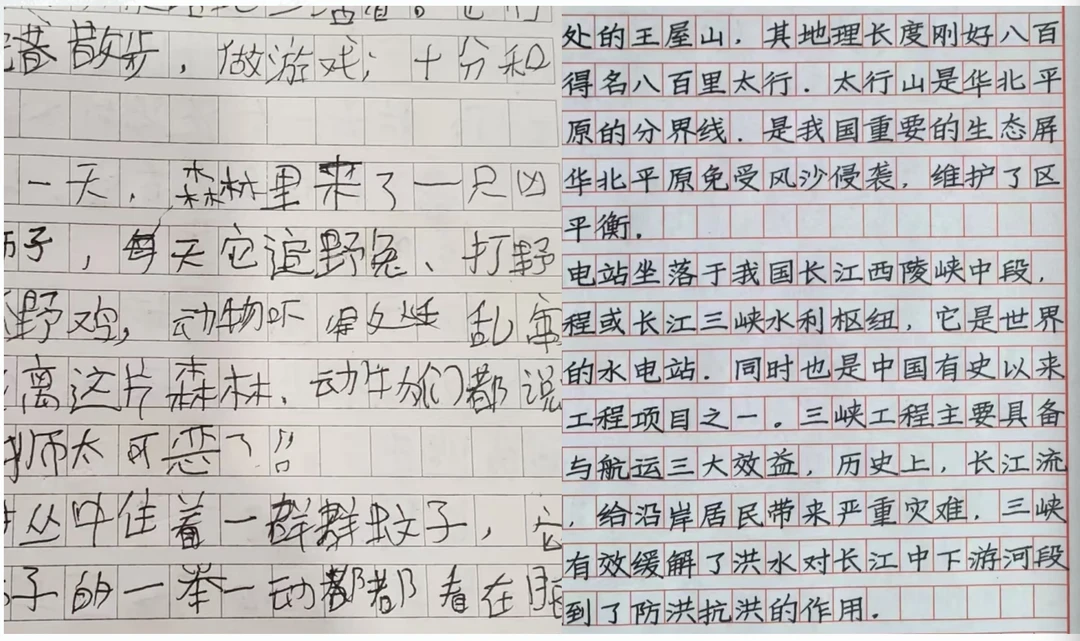 着散步，做游戏；十分和
一天，森林里来了一只凶
子，每天它追野兔、打野
野鸡，动物吓得处处乱窜
离这片森林，动物们都说
狮太可恶了！！
丛中住着一群群蚊子，它
子的一举一动都都看在眼
处的王屋山，其地理长度刚好八百
得名八百里太行．太行山是华北平
原的分界线．是我国重要的生态屏
华北平原免受风沙侵袭，维护了区
平衡．
电站坐落于我国长江西陵峡中段，
程或长江三峡水利枢纽，它是世界
的水电站．同时也是中国有史以来
工程项目之一。三峡工程主要具备
与航运三大效益，历史上，长江流
，给沿岸居民带来严重灾难，三峡
有效缓解了洪水对长江中下游河段
到了防洪抗洪的作用．